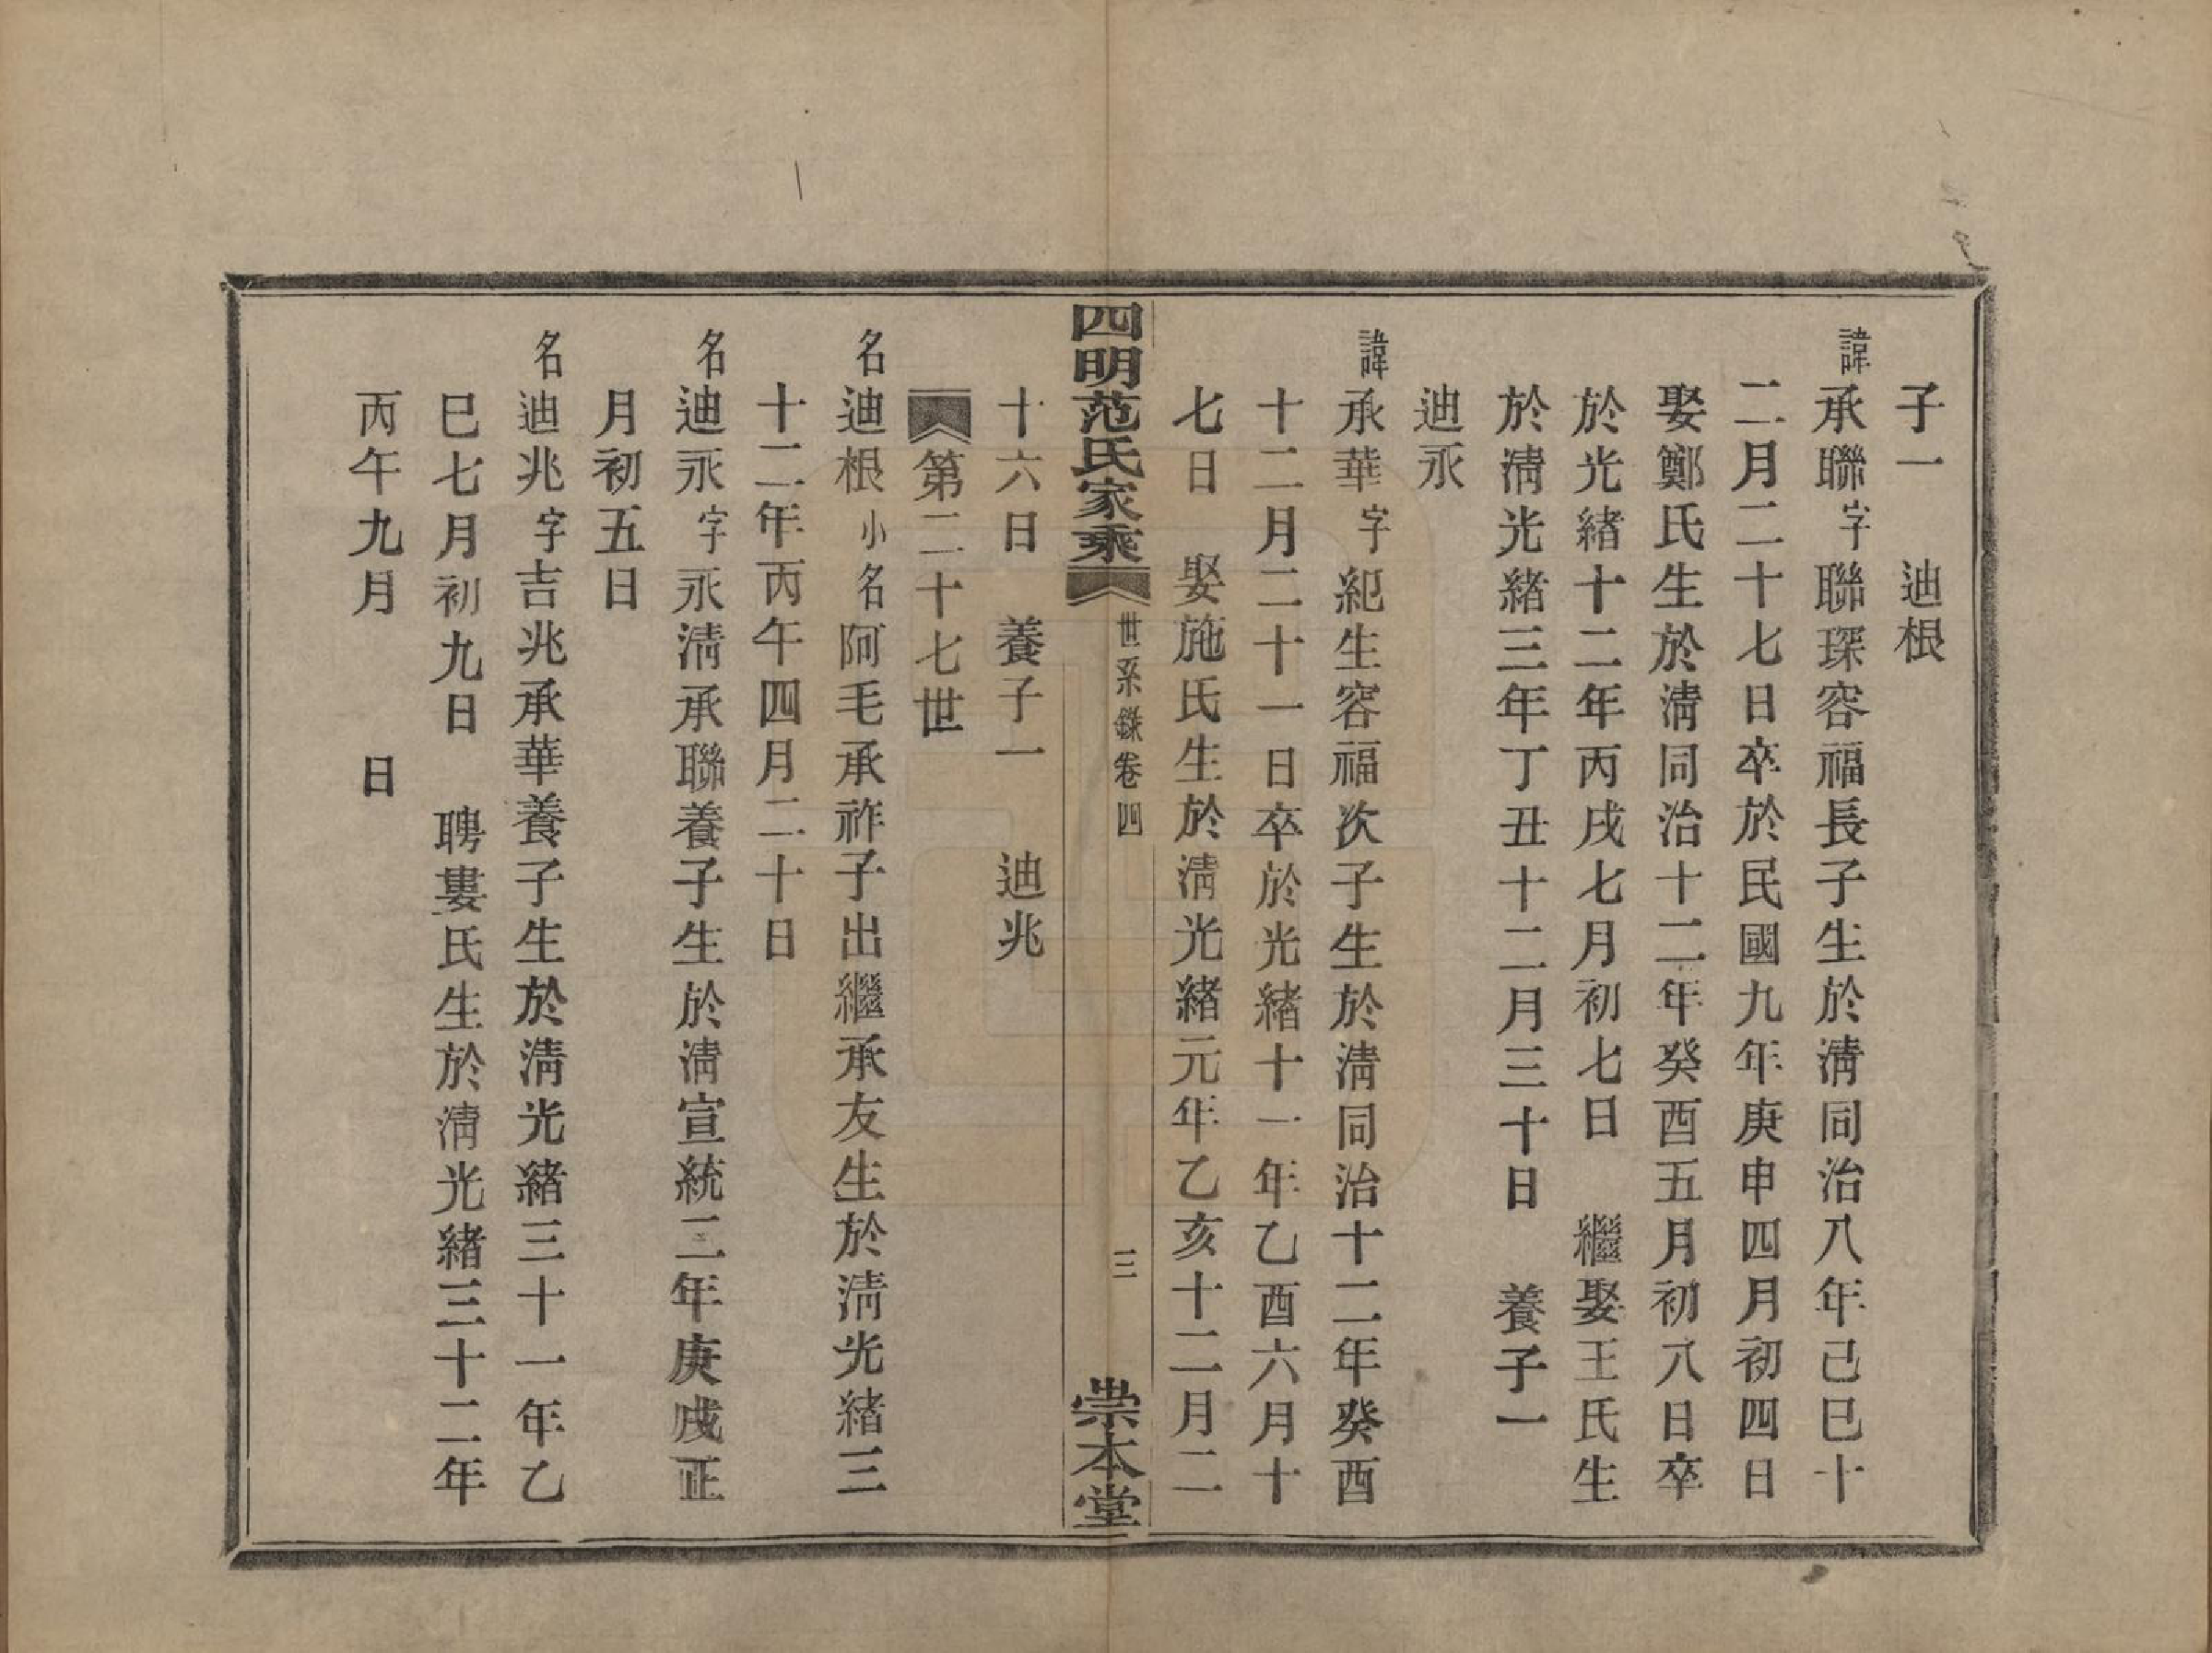 子一 迪根
諱承聯字聯琛容福長子生於淸同治八年己巳十
二月二十七日卒於民國九年庚申四月初四日
娶鄭氏生於淸同治十二年癸酉五月初八日卒
於光緒十二年丙戌七月初七日 繼娶王氏生
於淸光緒三年丁丑十二月三十日 養子一
迪永
諱承華字紀生容福次子生於淸同治十二年癸酉
十二月二十一日卒於光緒十一年乙酉六月十
七日 娶施氏生於淸光緒元年乙亥十二月二
四明范氏家乘 世系錄卷四 三 崇本堂
十六日 養子一 迪兆
第二十七世
名迪根小名阿毛承祚子出繼承友生於淸光緒三
十二年丙午四月二十日
名迪永字永淸承聯養子生於淸宣統二年庚戌正
月初五日
名迪兆字吉兆承華養子生於淸光緒三十一年乙
巳七月初九日 聘婁氏生於淸光緒三十二年
丙午九月 日